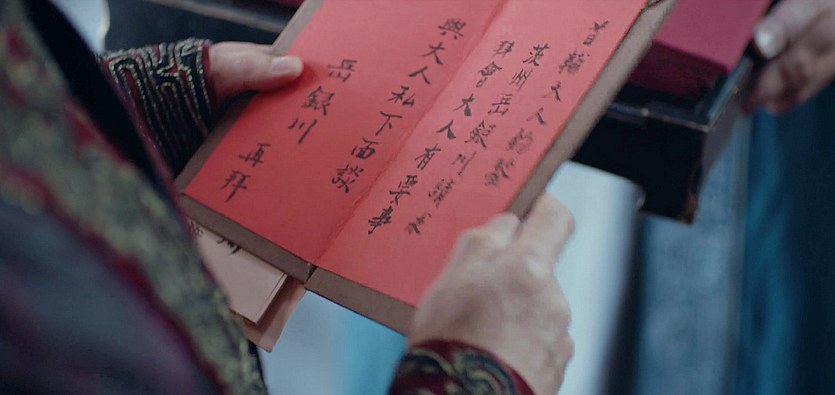 首輔大人
州岳銀川請
拜會大人有要事
與大人私下面談
岳銀川
再拜